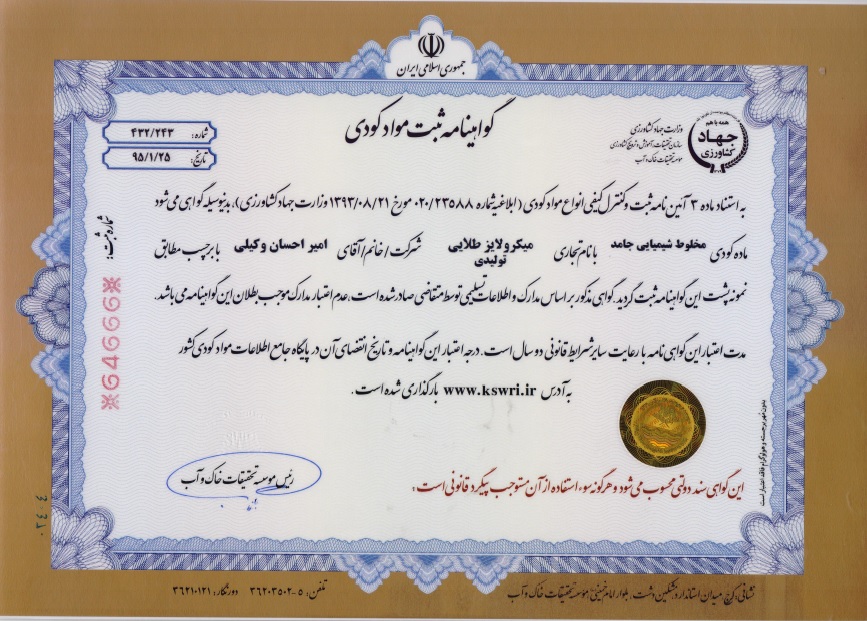 جمهوری اسلامی ایران
همه با هم
جهاد
کشاورزی
وزارت جهاد کشاورزی
سازمان تحقیقات، آموزش و ترویج کشاورزی
موسسه تحقیقات خاک و آب
گواهینامه ثبت مواد کودی
شماره: ۴۳۲/۲۴۳
تاریخ: ۹۵/۱/۲۵
به استناد ماده ۳ آئین نامه ثبت و کنترل کیفی انواع مواد کودی (ابلاغیه شماره ۰۲۰/۲۳۵۸۸ مورخ ۱۳۹۳/۰۸/۲۱ وزارت جهاد کشاورزی)، بدینوسیله گواهی می شود
ماده کودی مخلوط شیمیایی جامد با نام تجاری میکرولایز طلایی تولیدی شرکت/خانم/آقای امیر احسان وکیلی با برچسب مطابق
نمونه پشت این گواهینامه ثبت گردید. گواهی مذکور بر اساس مدارک و اطلاعات تسلیمی توسط متقاضی صادر شده است، عدم اعتبار مدارک موجب بطلان این گواهینامه می باشد.
مدت اعتبار این گواهی نامه با رعایت سایر شرایط قانونی دو سال است. درجه اعتبار این گواهینامه و تاریخ انقضای آن در پایگاه جامع اطلاعات مواد کودی کشور
به آدرس www.kswri.ir بارگذاری شده است.
شماره ثبت:
※64666※
رئیس موسسه تحقیقات خاک و آب
این گواهی سند دولتی محسوب می شود و هرگونه سوء استفاده از آن مستوجب پیگرد قانونی است.
بدون مهر برجسته و هولوگرام فاقد اعتبار است
۰۳۴۰۴
نشانی: کرج، میدان استاندارد، مشکین دشت، بلوار امام خمینی، موسسه تحقیقات خاک و آب
تلفن: ۵-۳۶۲۰۳۵۰۲ دورنگار: ۳۶۲۱۰۱۲۱